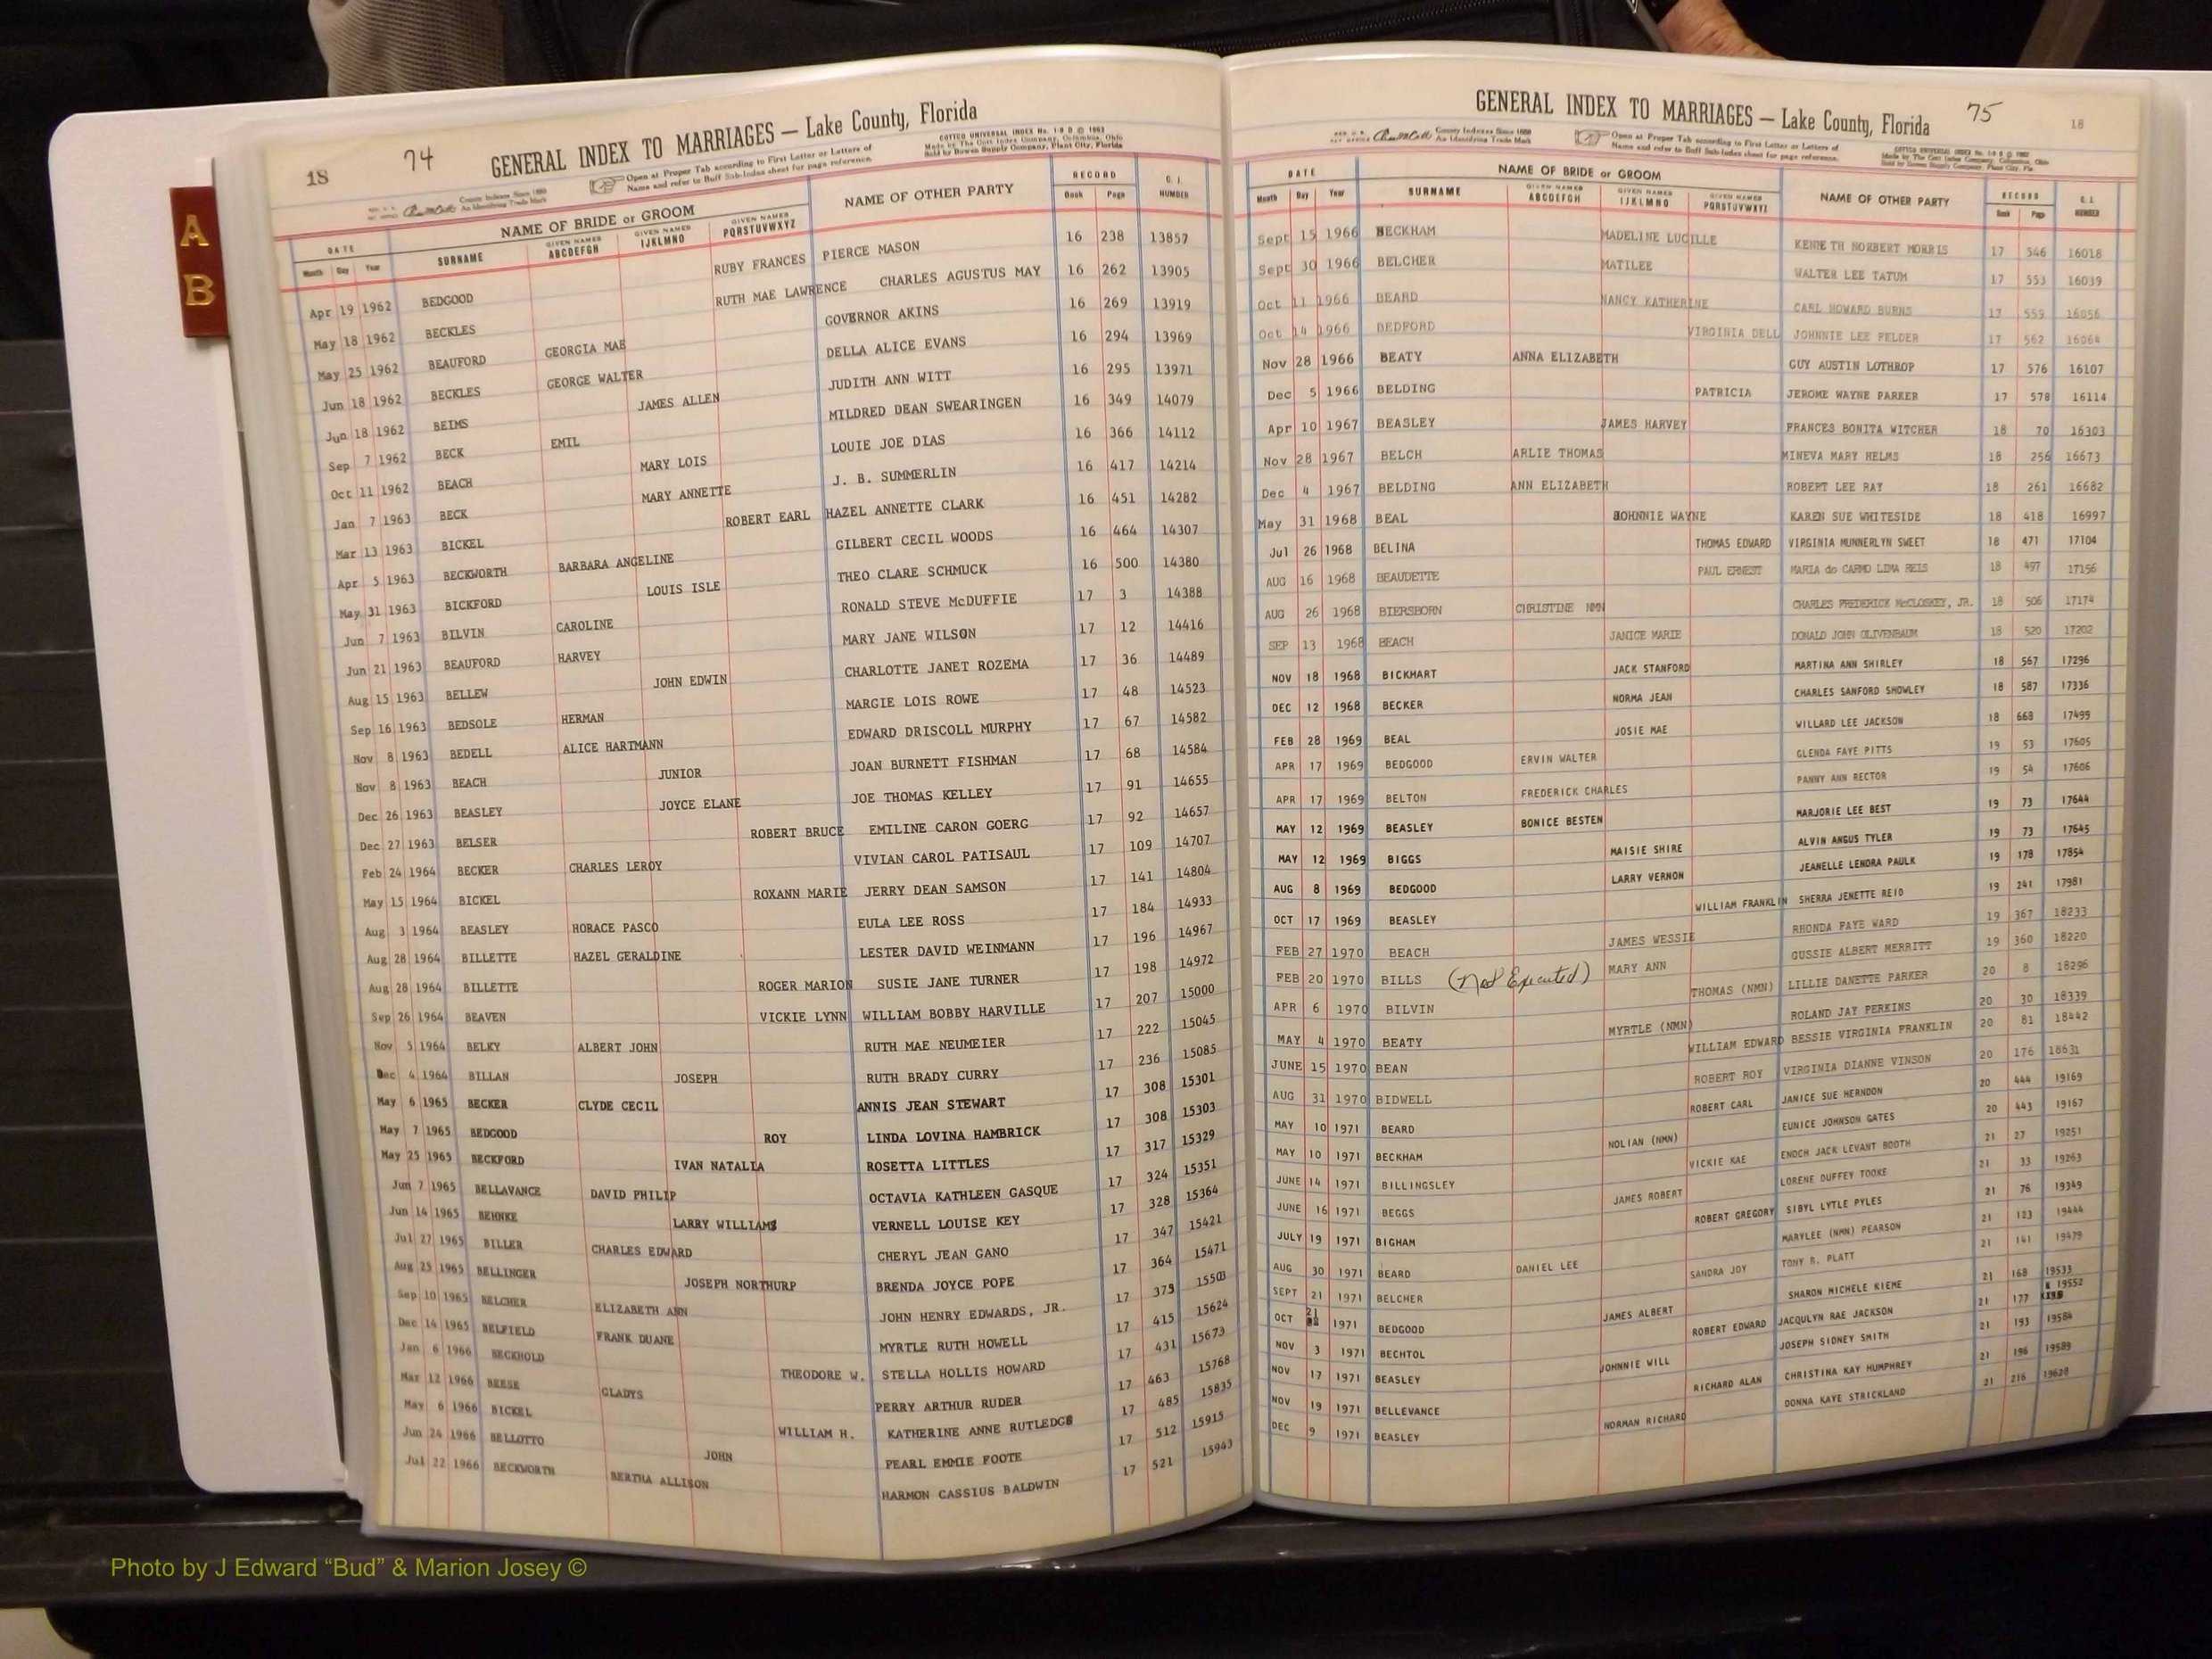 74
18
GENERAL INDEX TO MARRIAGES — Lake County, Florida
County Indexes Since 1888
An Identifying Trade Mark
Open at Proper Tab according to First Letter or Letters of
Name and refer to Buff Sub-Index sheet for page reference.
COTTCO UNIVERSAL INDEX No. 1-9 B © 1962
Made by The Cott Index Company, Columbus, Ohio
Sold by Bowen Supply Company, Plant City, Florida
DATE NAME OF BRIDE or GROOM NAME OF OTHER PARTY RECORD C. J.
Month Day Year SURNAME GIVEN NAMES ABCDEFGH GIVEN NAMES IJKLMNO GIVEN NAMES PQRSTUVWXYZ Book Page NUMBER
Apr 19 1962 BEDGOOD RUBY FRANCES PIERCE MASON 16 238 13857
May 18 1962 BECKLES RUTH MAE LAWRENCE CHARLES AGUSTUS MAY 16 262 13905
May 25 1962 BEAUFORD GEORGIA MAE GOVERNOR AKINS 16 269 13919
Jun 18 1962 BECKLES GEORGE WALTER DELLA ALICE EVANS 16 294 13969
Jun 18 1962 BEIMS JAMES ALLEN JUDITH ANN WITT 16 295 13971
Sep 7 1962 BECK EMIL MILDRED DEAN SWEARINGEN 16 349 14079
Oct 11 1962 BEACH MARY LOIS LOUIE JOE DIAS 16 366 14112
Jan 7 1963 BECK MARY ANNETTE J. B. SUMMERLIN 16 417 14214
Mar 13 1963 BICKEL ROBERT EARL HAZEL ANNETTE CLARK 16 451 14282
Apr 5 1963 BECKWORTH BARBARA ANGELINE GILBERT CECIL WOODS 16 464 14307
May 31 1963 BICKFORD LOUIS ISLE THEO CLARE SCHMUCK 16 500 14380
Jun 7 1963 BILVIN CAROLINE RONALD STEVE McDUFFIE 17 3 14388
Jun 21 1963 BEAUFORD HARVEY MARY JANE WILSON 17 12 14416
Aug 15 1963 BELLEW JOHN EDWIN CHARLOTTE JANET ROZEMA 17 36 14489
Sep 16 1963 BEDSOLE HERMAN MARGIE LOIS ROWE 17 48 14523
Nov 8 1963 BEDELL ALICE HARTMANN EDWARD DRISCOLL MURPHY 17 67 14582
Nov 8 1963 BEACH JUNIOR JOAN BURNETT FISHMAN 17 68 14584
Dec 26 1963 BEASLEY JOYCE ELANE JOE THOMAS KELLEY 17 91 14655
Dec 27 1963 BELSER ROBERT BRUCE EMILINE CARON GOERG 17 92 14657
Feb 24 1964 BECKER CHARLES LEROY VIVIAN CAROL PATISAUL 17 109 14707
May 15 1964 BICKEL ROXANN MARIE JERRY DEAN SAMSON 17 141 14804
Aug 3 1964 BEASLEY HORACE PASCO EULA LEE ROSS 17 184 14933
Aug 28 1964 BILLETTE HAZEL GERALDINE LESTER DAVID WEINMANN 17 196 14967
Aug 28 1964 BILLETTE ROGER MARION SUSIE JANE TURNER 17 198 14972
Sep 26 1964 BEAVEN VICKIE LYNN WILLIAM BOBBY HARVILLE 17 207 15000
Nov 5 1964 BELKY ALBERT JOHN RUTH MAE NEUMEIER 17 222 15045
Dec 4 1964 BILLAN JOSEPH RUTH BRADY CURRY 17 236 15085
May 6 1965 BECKER CLYDE CECIL ANNIS JEAN STEWART 17 308 15301
May 7 1965 BEDGOOD ROY LINDA LOVINA HAMBRICK 17 308 15303
May 25 1965 BECKFORD IVAN NATALIA ROSETTA LITTLES 17 317 15329
Jun 7 1965 BELLAVANCE DAVID PHILIP OCTAVIA KATHLEEN GASQUE 17 324 15351
Jun 14 1965 BEHNKE LARRY WILLIAMS VERNELL LOUISE KEY 17 328 15364
Jul 27 1965 BILLER CHARLES EDWARD CHERYL JEAN GANO 17 347 15421
Aug 25 1965 BELLINGER JOSEPH NORTHURP BRENDA JOYCE POPE 17 364 15471
Sep 10 1965 BELCHER ELIZABETH ANN JOHN HENRY EDWARDS, JR. 17 373 15503
Dec 14 1965 BELFIELD FRANK DUANE MYRTLE RUTH HOWELL 17 415 15624
Jan 6 1966 BECKHOLD THEODORE W. STELLA HOLLIS HOWARD 17 431 15673
Mar 12 1966 BEESE GLADYS PERRY ARTHUR RUDER 17 463 15768
May 6 1966 BICKEL WILLIAM H. KATHERINE ANNE RUTLEDGE 17 485 15835
Jun 24 1966 BELLOTTO JOHN PEARL EMMIE FOOTE 17 512 15915
Jul 22 1966 BECKWORTH BERTHA ALLISON HARMON CASSIUS BALDWIN 17 521 15943
75
18
GENERAL INDEX TO MARRIAGES — Lake County, Florida
County Indexes Since 1888
An Identifying Trade Mark
Open at Proper Tab according to First Letter or Letters of
Name and refer to Buff Sub-Index sheet for page reference.
DATE NAME OF BRIDE or GROOM NAME OF OTHER PARTY RECORD C. J.
Month Day Year SURNAME GIVEN NAMES ABCDEFGH GIVEN NAMES IJKLMNO GIVEN NAMES PQRSTUVWXYZ Book Page NUMBER
Sept 15 1966 BECKHAM MADELINE LUCILLE KENNETH NORBERT MORRIS 17 546 16018
Sept 30 1966 BELCHER MATILEE WALTER LEE TATUM 17 553 16039
Oct 11 1966 BEARD NANCY KATHERINE CARL HOWARD BURNS 17 559 16056
Oct 14 1966 BEDFORD VIRGINIA DELL JOHNNIE LEE FELDER 17 562 16064
Nov 28 1966 BEATY ANNA ELIZABETH GUY AUSTIN LOTHROP 17 576 16107
Dec 5 1966 BELDING PATRICIA JEROME WAYNE PARKER 17 578 16114
Apr 10 1967 BEASLEY JAMES HARVEY FRANCES BONITA WITCHER 18 70 16303
Nov 28 1967 BELCH ARLIE THOMAS MINEVA MARY HELMS 18 256 16673
Dec 4 1967 BELDING ANN ELIZABETH ROBERT LEE RAY 18 261 16682
May 31 1968 BEAL JOHNNIE WAYNE KAREN SUE WHITESIDE 18 418 16997
Jul 26 1968 BELINA THOMAS EDWARD VIRGINIA MUNNERLYN SWEET 18 471 17104
AUG 16 1968 BEAUDETTE PAUL ERNEST MARIA do CARMO LIMA REIS 18 497 17156
AUG 26 1968 BIERSBORN CHRISTINE NMN CHARLES FREDERICK McCLOSKEY, JR. 18 506 17174
SEP 13 1968 BEACH JANICE MARIE DONALD JOHN OLIVENBAUM 18 520 17202
NOV 18 1968 BICKHART JACK STANFORD MARTINA ANN SHIRLEY 18 567 17296
DEC 12 1968 BECKER NORMA JEAN CHARLES SANFORD SHOWLEY 18 587 17336
FEB 28 1969 BEAL JOSIE MAE WILLARD LEE JACKSON 18 668 17499
APR 17 1969 BEDGOOD ERVIN WALTER GLENDA FAYE PITTS 19 53 17605
APR 17 1969 BELTON FREDERICK CHARLES PANNY ANN RECTOR 19 54 17606
MAY 12 1969 BEASLEY BONICE BESTEN MARJORIE LEE BEST 19 73 17644
MAY 12 1969 BIGGS MAISIE SHIRE ALVIN ANGUS TYLER 19 73 17645
AUG 8 1969 BEDGOOD LARRY VERNON JEANELLE LENDRA PAULK 19 178 17854
OCT 17 1969 BEASLEY WILLIAM FRANKLIN SHERRA JENETTE REID 19 241 17981
FEB 27 1970 BEACH JAMES WESSIE RHONDA FAYE WARD 19 367 18233
FEB 20 1970 BILLS (Not Executed) MARY ANN GUSSIE ALBERT MERRITT 19 360 18220
APR 6 1970 BILVIN THOMAS (NMN) LILLIE DANETTE PARKER 20 8 18296
MAY 4 1970 BEATY MYRTLE (NMN) ROLAND JAY PERKINS 20 30 18339
JUNE 15 1970 BEAN WILLIAM EDWARD BESSIE VIRGINIA FRANKLIN 20 81 18442
AUG 31 1970 BIDWELL ROBERT ROY VIRGINIA DIANNE VINSON 20 176 18631
MAY 10 1971 BEARD ROBERT CARL JANICE SUE HERNDON 20 444 19169
MAY 10 1971 BECKHAM NOLIAN (NMN) EUNICE JOHNSON GATES 20 443 19167
JUNE 14 1971 BILLINGSLEY VICKIE KAE ENOCH JACK LEVANT BOOTH 21 27 19251
JUNE 16 1971 BEGGS JAMES ROBERT LORENE DUFFEY TOOKE 21 33 19263
JULY 19 1971 BIGHAM ROBERT GREGORY SIBYL LYTLE PYLES 21 76 19349
AUG 30 1971 BEARD DANIEL LEE MARYLEE (NMN) PEARSON 21 123 19444
SEPT 21 1971 BELCHER SANDRA JOY TONY R. PLATT 21 141 19479
OCT 21 1971 BEDGOOD JAMES ALBERT SHARON MICHELE KIEME 21 168 19533
NOV 3 1971 BECHTOL ROBERT EDWARD JACQULYN RAE JACKSON 21 177 19552
NOV 17 1971 BEASLEY JOHNNIE WILL JOSEPH SIDNEY SMITH 21 193 19584
NOV 19 1971 BELLEVANCE RICHARD ALAN CHRISTINA KAY HUMPHREY 21 196 19589
DEC 9 1971 BEASLEY NORMAN RICHARD DONNA KAYE STRICKLAND 21 216 19628
A
B
Photo by J Edward “Bud” & Marion Josey ©